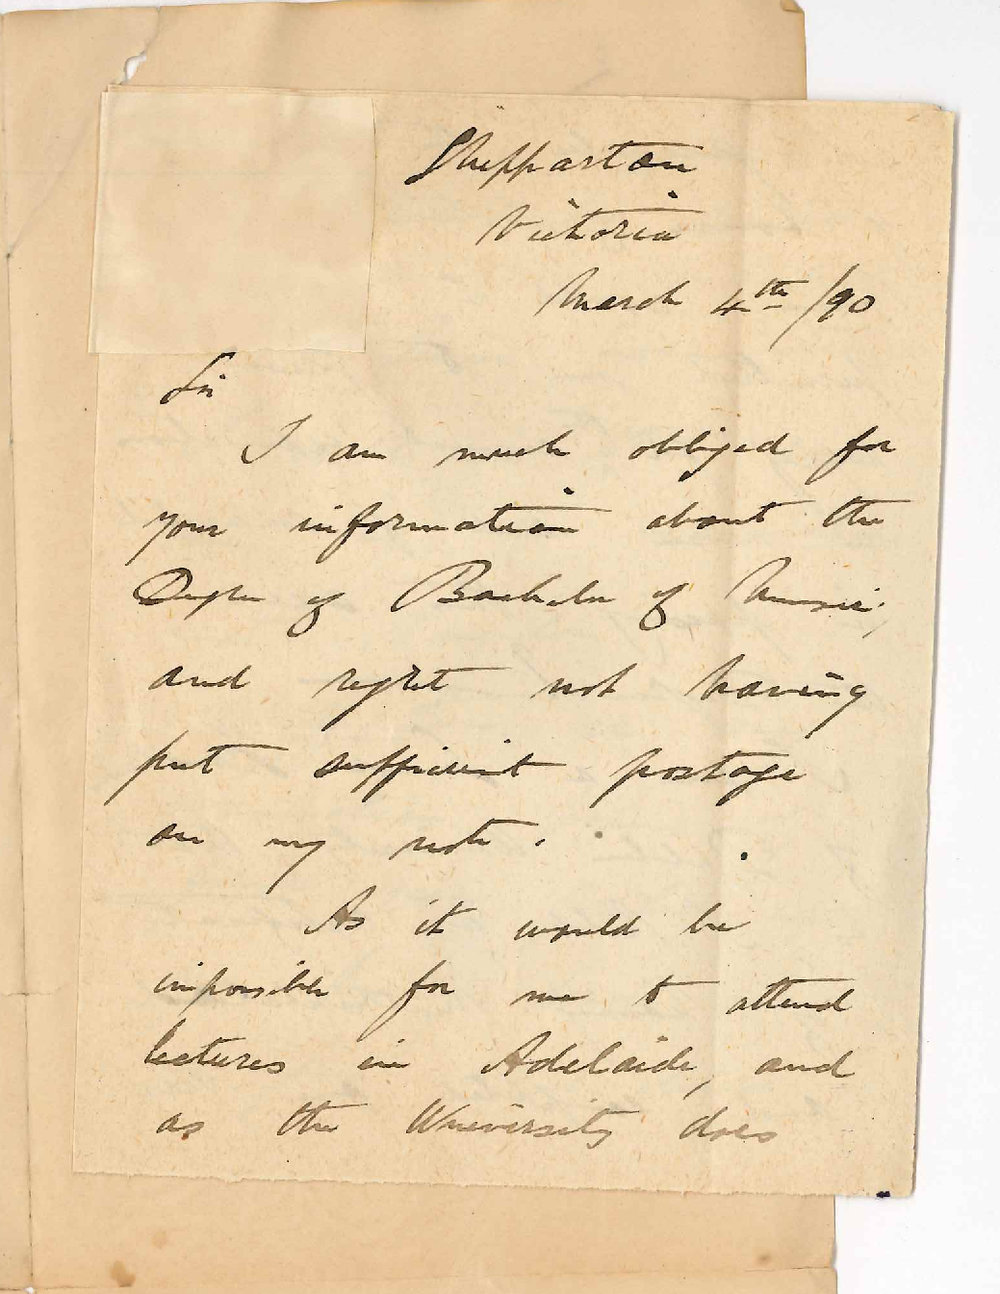 Shepparton
Victoria
March 4th /90
Sir
I am much obliged for
your information about the
Degree of Bachelor of Music,
and regret not having
put sufficient postage
on my note.
As it would be
impossible for me to attend
lectures in Adelaide, and
as the University does